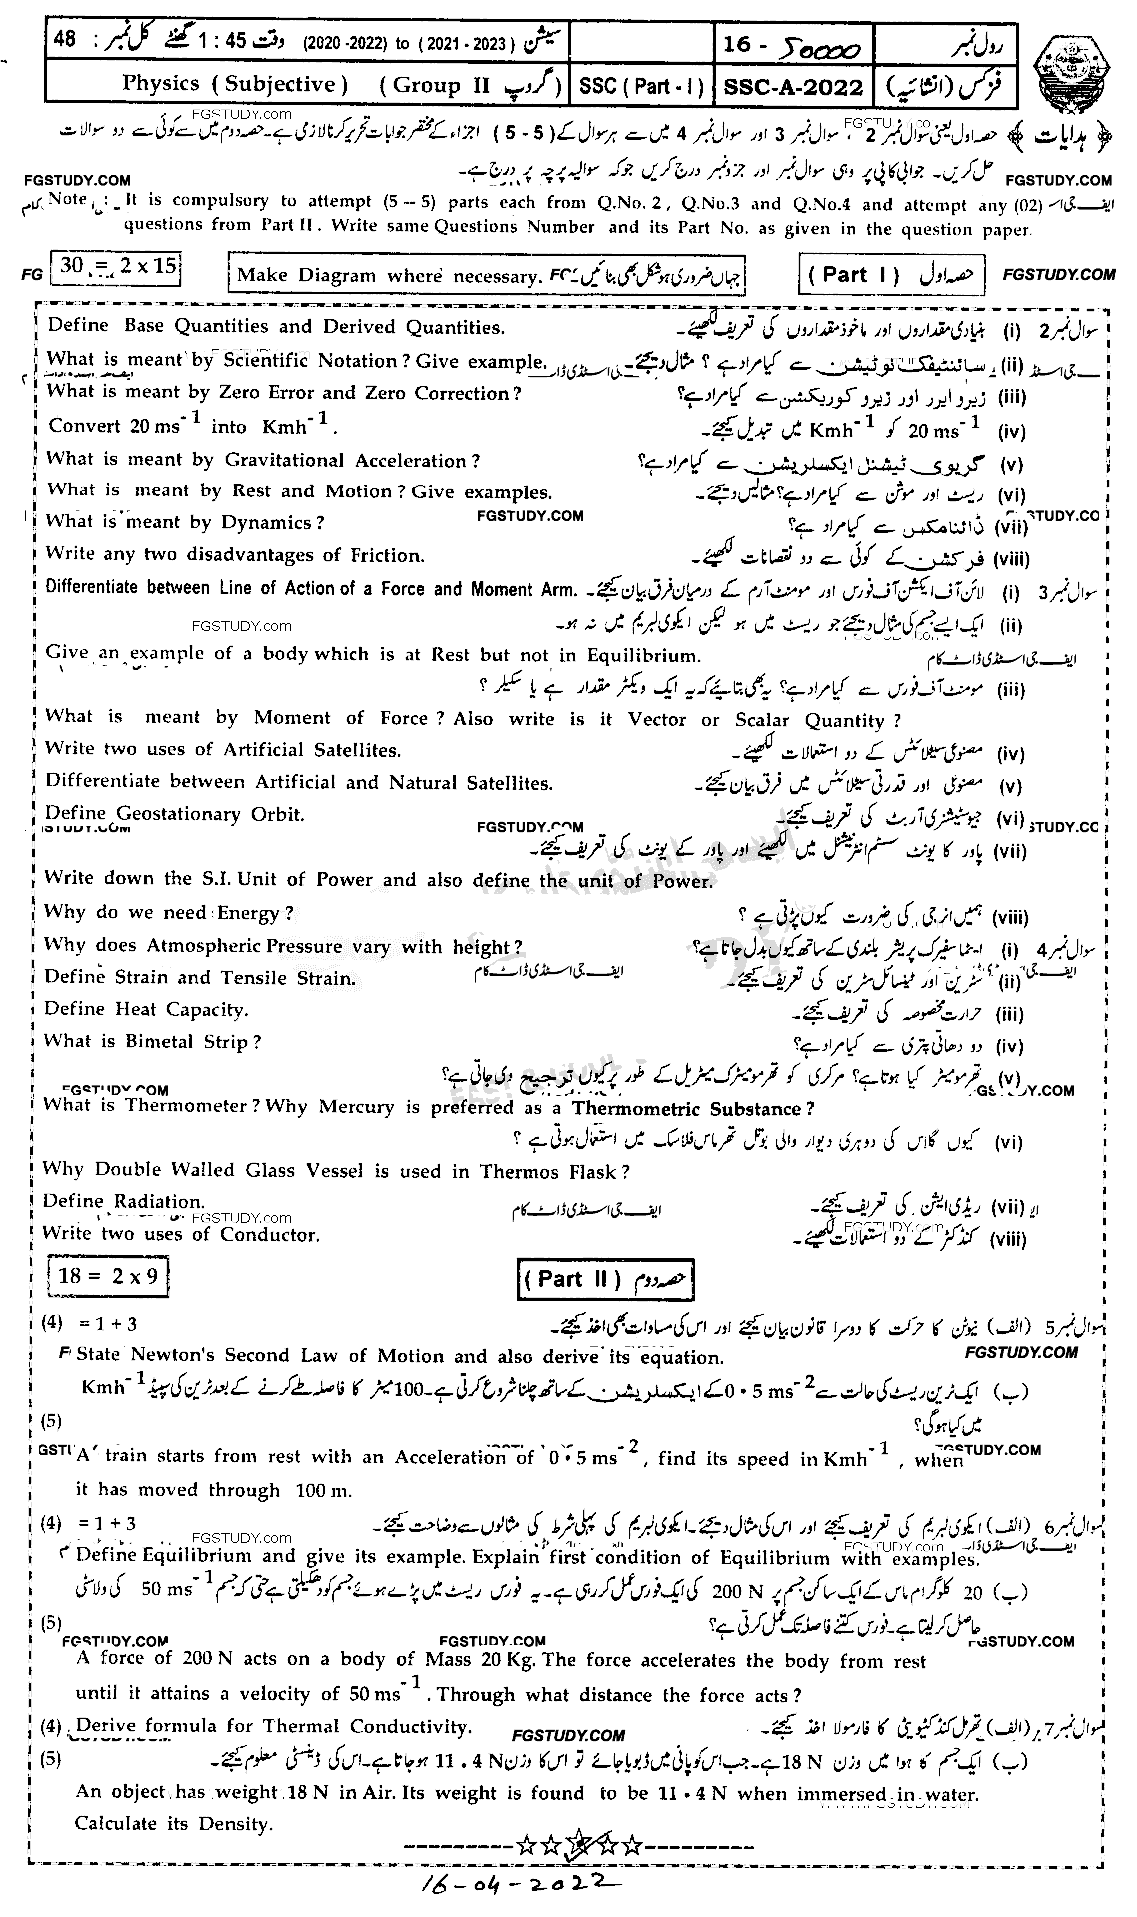 رول نمبر 16 - 50000 سیشن (2021 - 2023) to (2020 -2022) وقت 1 : 45 گھنٹے کل نمبر : 48
فزکس (انشائیہ) SSC-A-2022 SSC (Part - I) Physics (Subjective) (Group II گروپ)
FGSTUDY.com
ہدایات حصہ اول یعنی سوال نمبر 2 ، سوال نمبر 3 اور سوال نمبر 4 میں سے ہر سوال کے (5 - 5) اجزاء کے مختصر جوابات تحریر کرنا لازمی ہے۔ حصہ دوم میں سے کوئی سے دو سوالات
حل کریں۔ جوابی کاپی پر وہی سوال نمبر اور جزو نمبر درج کریں جو کہ سوالیہ پرچہ پر درج ہے۔
FGSTUDY.COM FGSTUDY.COM
Note : It is compulsory to attempt (5 – 5) parts each from Q.No. 2 , Q.No.3 and Q.No.4 and attempt any (02)
questions from Part II . Write same Questions Number and its Part No. as given in the question paper.
30 = 2 x 15 Make Diagram where necessary. جہاں ضروری ہو شکل بھی بنائیں۔ (Part I) حصہ اول FGSTUDY.COM
Define Base Quantities and Derived Quantities. سوال نمبر 2 (i) بنیادی مقداروں اور ماخوذ مقداروں کی تعریف لکھیئے۔
What is meant by Scientific Notation ? Give example. (ii) سائنٹیفک نوٹیشن سے کیا مراد ہے ؟ مثال دیجئے۔
What is meant by Zero Error and Zero Correction? (iii) زیرو ایرر اور زیرو کوریکشن سے کیا مراد ہے؟
Convert 20 ms⁻¹ into Kmh⁻¹ . (iv) 20 ms⁻¹ کو Kmh⁻¹ میں تبدیل کیجئے۔
What is meant by Gravitational Acceleration ? (v) گریوی ٹیشنل ایکسلریشن سے کیا مراد ہے؟
What is meant by Rest and Motion ? Give examples. (vi) ریسٹ اور موشن سے کیا مراد ہے؟ مثالیں دیجئے۔
What is meant by Dynamics ? FGSTUDY.COM (vii) ڈائنامکس سے کیا مراد ہے؟
Write any two disadvantages of Friction. (viii) فرکشن کے کوئی سے دو نقصانات لکھیئے۔
Differentiate between Line of Action of a Force and Moment Arm. سوال نمبر 3 (i) لائن آف ایکشن آف فورس اور مومنٹ آرم کے درمیان فرق بیان کیجئے۔
FGSTUDY.com (ii) ایک ایسے جسم کی مثال دیجئے جو ریسٹ میں ہو لیکن ایکوی لبریم میں نہ ہو۔
Give an example of a body which is at Rest but not in Equilibrium. ایف جی اسٹڈی ڈاٹ کام
(iii) مومنٹ آف فورس سے کیا مراد ہے؟ یہ بھی بتائیے کہ یہ ایک ویکٹر مقدار ہے یا سکیلر ؟
What is meant by Moment of Force ? Also write is it Vector or Scalar Quantity ?
Write two uses of Artificial Satellites. (iv) مصنوعی سیٹلائٹس کے دو استعمالات لکھیئے۔
Differentiate between Artificial and Natural Satellites. (v) مصنوعی اور قدرتی سیٹلائٹس میں فرق بیان کیجئے۔
Define Geostationary Orbit. (vi) جیوسٹیشنری آربٹ کی تعریف کیجئے۔
FGSTUDY.COM
(vii) پاور کا یونٹ سسٹم انٹرنیشنل میں لکھیئے اور پاور کے یونٹ کی تعریف کیجئے۔
Write down the S.I. Unit of Power and also define the unit of Power.
Why do we need Energy ? (viii) ہمیں انرجی کی ضرورت کیوں پڑتی ہے ؟
Why does Atmospheric Pressure vary with height ? سوال نمبر 4 (i) ایٹماسفیرک پریشر بلندی کے ساتھ کیوں بدل جاتا ہے؟
Define Strain and Tensile Strain. ایف جی اسٹڈی ڈاٹ کام (ii) سٹرین اور ٹینسائل سٹرین کی تعریف کیجئے۔
Define Heat Capacity. (iii) حرارت مخصوصہ کی تعریف کیجئے۔
What is Bimetal Strip ? (iv) دو دھاتی پتری سے کیا مراد ہے؟
(v) تھرمومیٹر کیا ہوتا ہے؟ مرکری کو تھرمومیٹرک میٹریل کے طور پر کیوں ترجیح دی جاتی ہے؟
FGSTUDY.COM
What is Thermometer ? Why Mercury is preferred as a Thermometric Substance ?
(vi) کیوں گلاس کی دوہری دیوار والی بوتل تھرماس فلاسک میں استعمال ہوتی ہے ؟
Why Double Walled Glass Vessel is used in Thermos Flask ?
Define Radiation. ایف جی اسٹڈی ڈاٹ کام (vii) ریڈی ایشن کی تعریف کیجئے۔
FGSTUDY.com
Write two uses of Conductor. (viii) کنڈکٹر کے دو استعمالات لکھیئے۔
18 = 2 x 9 (Part II) حصہ دوم
(4) = 1 + 3 سوال نمبر 5 (الف) نیوٹن کا حرکت کا دوسرا قانون بیان کیجئے اور اس کی مساوات بھی اخذ کیجئے۔
State Newton's Second Law of Motion and also derive its equation. FGSTUDY.COM
(ب) ایک ٹرین ریسٹ کی حالت سے 0.5 ms⁻² کے ایکسلریشن کے ساتھ چلنا شروع کرتی ہے۔ 100 میٹر کا فاصلہ طے کرنے کے بعد ٹرین کی سپیڈ Kmh⁻¹
(5) میں کیا ہوگی؟
A train starts from rest with an Acceleration of 0.5 ms⁻² , find its speed in Kmh⁻¹ , when
it has moved through 100 m.
(4) = 1 + 3 سوال نمبر 6 (الف) ایکوی لبریم کی تعریف کیجئے اور اس کی مثال دیجئے۔ ایکوی لبریم کی پہلی شرط کی مثالوں سے وضاحت کیجئے۔
FGSTUDY.com
Define Equilibrium and give its example. Explain first condition of Equilibrium with examples.
(ب) 20 کلوگرام ماس کے ایک ساکن جسم پر 200 N کی ایک فورس عمل کر رہی ہے۔ یہ فورس ریسٹ میں پڑے ہوئے جسم کو دھکیلتی ہے حتیٰ کہ جسم 50 ms⁻¹ کی ولاسٹی
(5) حاصل کر لیتا ہے۔ فورس کتنے فاصلہ تک عمل کرتی ہے؟
FGSTUDY.COM FGSTUDY.COM FGSTUDY.COM
A force of 200 N acts on a body of Mass 20 Kg. The force accelerates the body from rest
until it attains a velocity of 50 ms⁻¹ . Through what distance the force acts ?
(4) Derive formula for Thermal Conductivity. FGSTUDY.COM سوال نمبر 7 (الف) تھرمل کنڈکٹیویٹی کا فارمولا اخذ کیجئے۔
(5) (ب) ایک جسم کا ہوا میں وزن 18 N ہے۔ جب اس کو پانی میں ڈبویا جائے تو اس کا وزن 11.4 N ہو جاتا ہے۔ اس کی ڈینسٹی معلوم کیجئے۔
An object has weight 18 N in Air. Its weight is found to be 11.4 N when immersed in water.
Calculate its Density.
16-04-2022